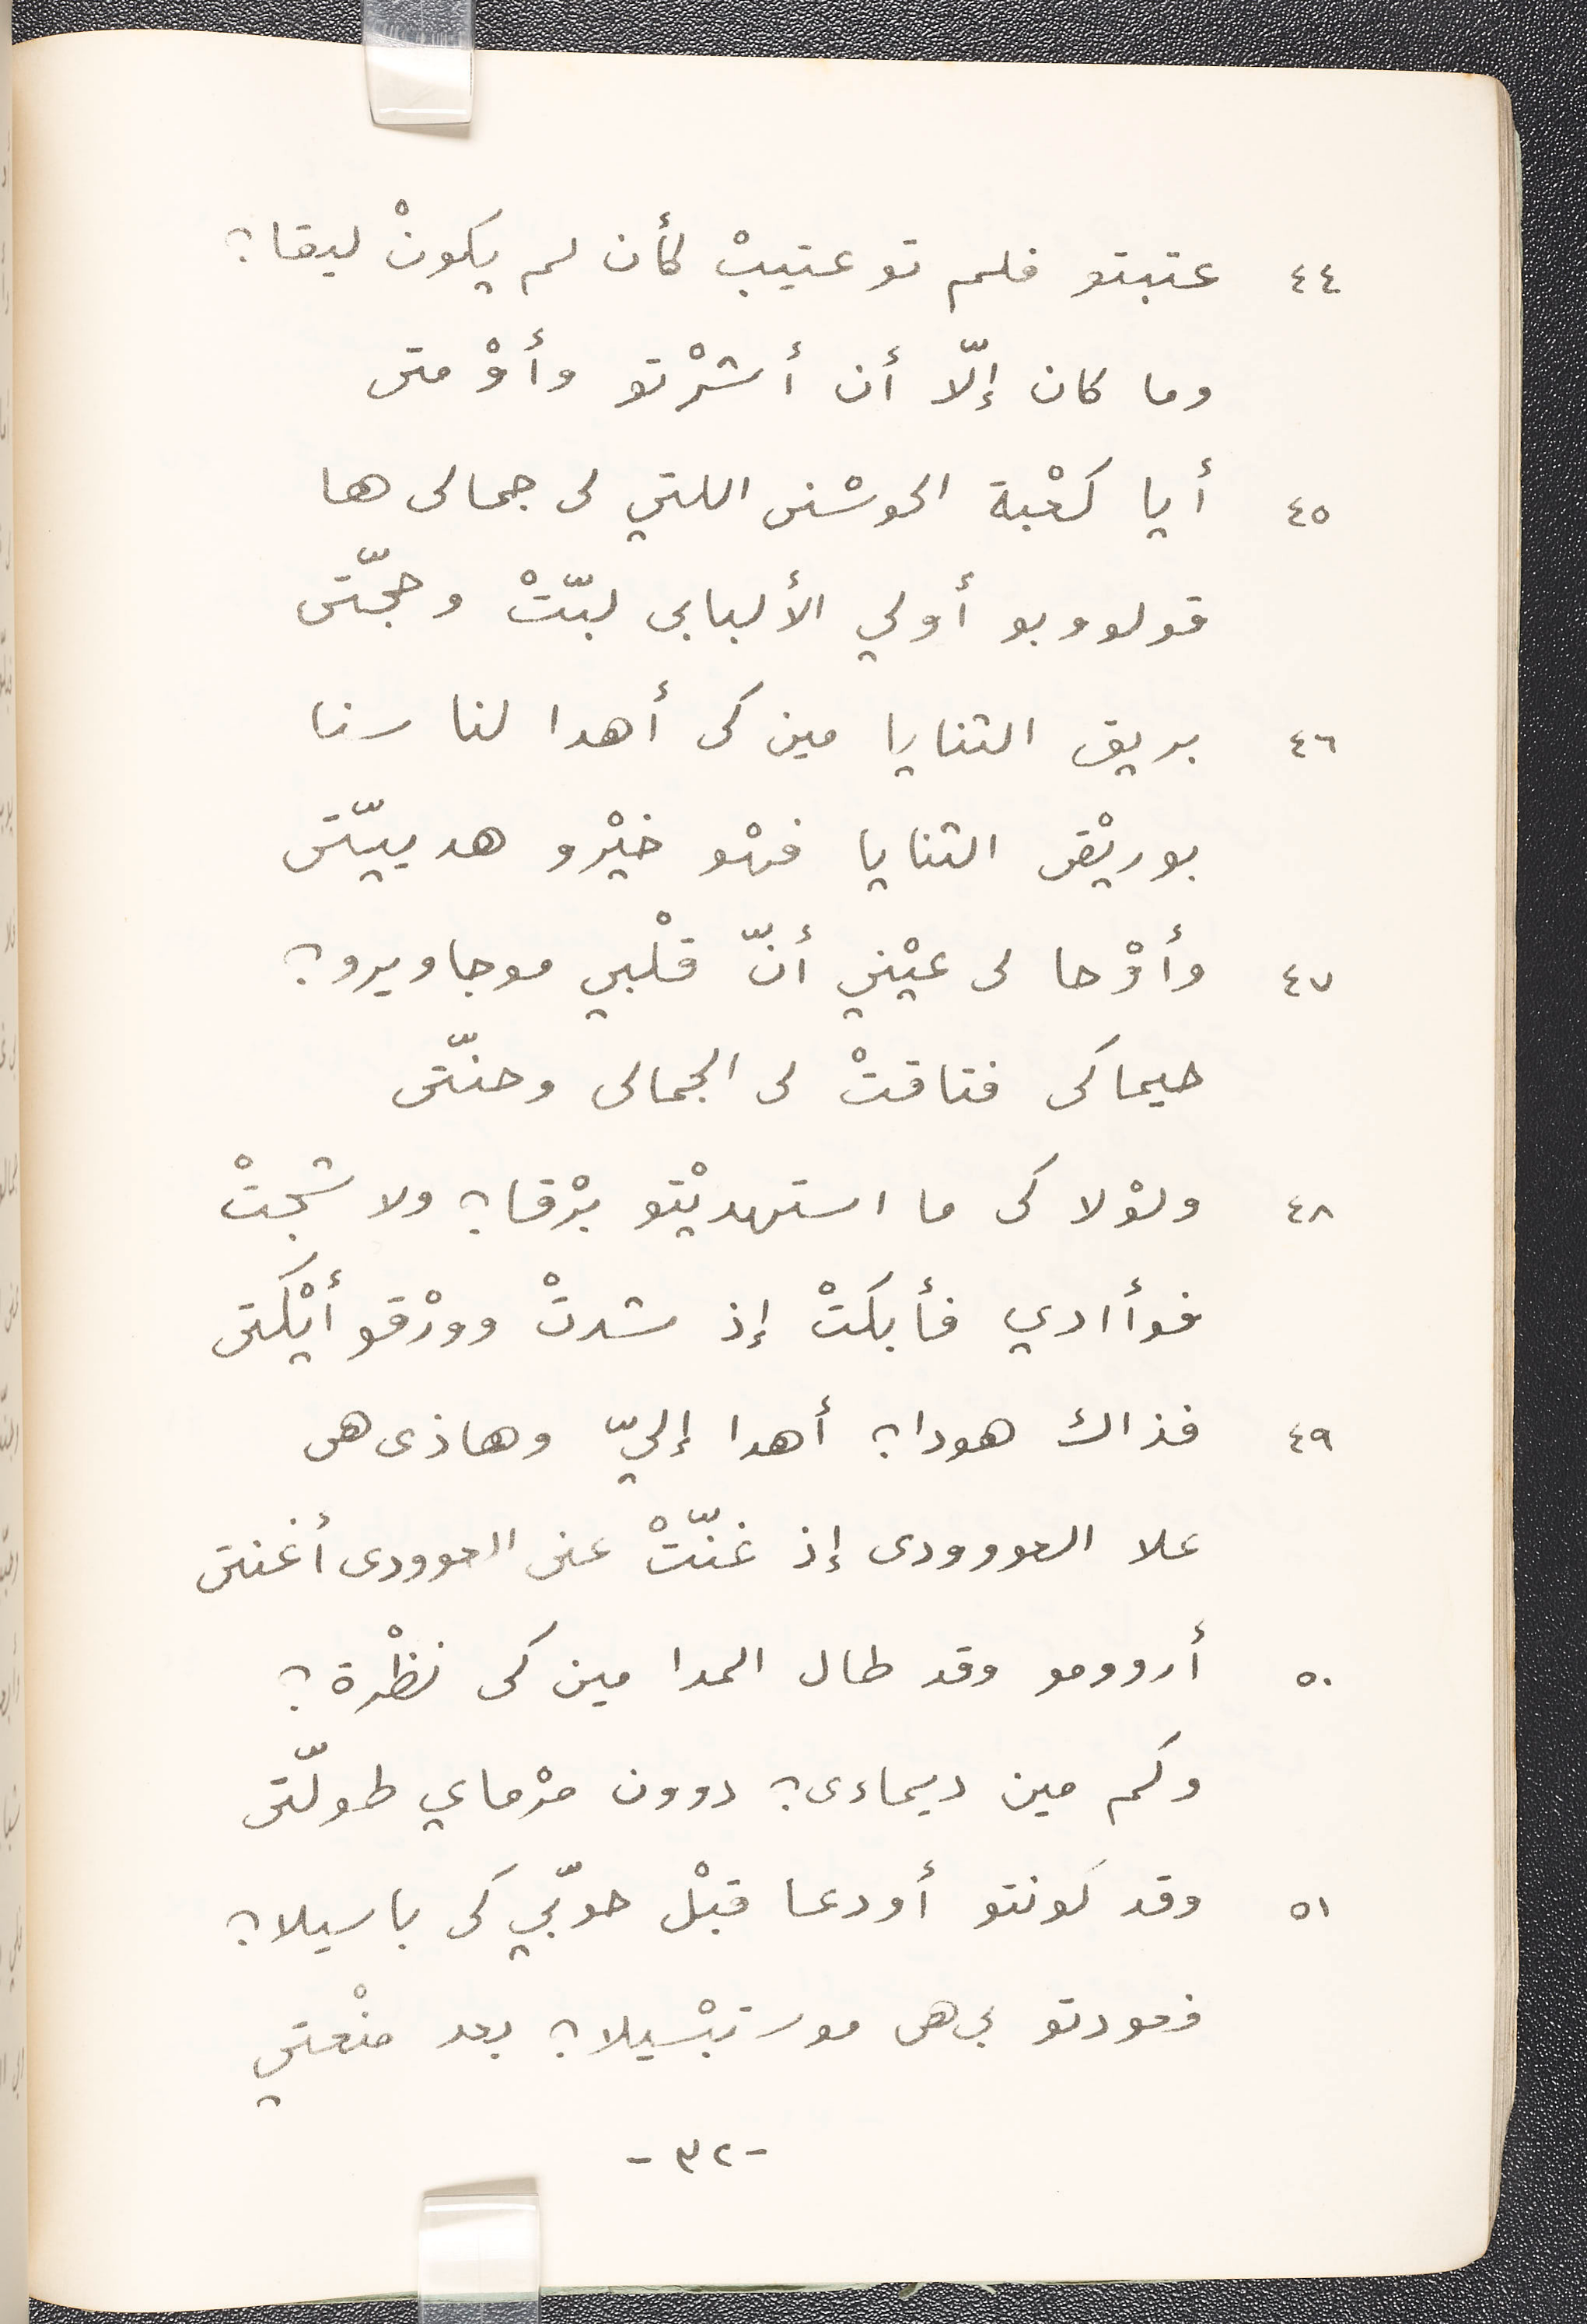 ٤٤ عتبتو فلم تو عتيبْ كأن لم يكونْ ليقا؟
وما كان إلّا أن أشرْتو وأوْمتى
٤٥ أيا كعْبة الحوسْنى اللتي لى جمالى ها
قولووبو أولي الألبابى لبّتْ وحجّتى
٤٦ بريق الثنايا مين كى أهدا لنا سنا
بوريْقى الثنايا فهْو خيْرو هدييّتى
٤٧ وأوْحا لى عيْني أنّ قلْبي موجاويرو؟
حيماكى فتاقتْ لى الجمالى وحنّتى
٤٨ ولوْلا كى ما استهديْتو برْقا؟ ولا شجتْ
فوأادي فأبكتْ إذ شدتْ وورْقو أيْكتى
٤٩ فذاك هودا؟ أهدا إليّ وهاذى هى
علا العووودى إذ غنّتْ عنى العوودى أغنتى
٥٠ أروومو وقد طال المدا مين كى نظْرة؟
وكم مين ديماءى؟ دوون مرْماي طولّتى
٥١ وقد كونتو أودعا قبْل حوبّي كى باسيلا؟
فعودتو بي هى موستبْسيلا؟ بعد منْعتي
-٣٢-